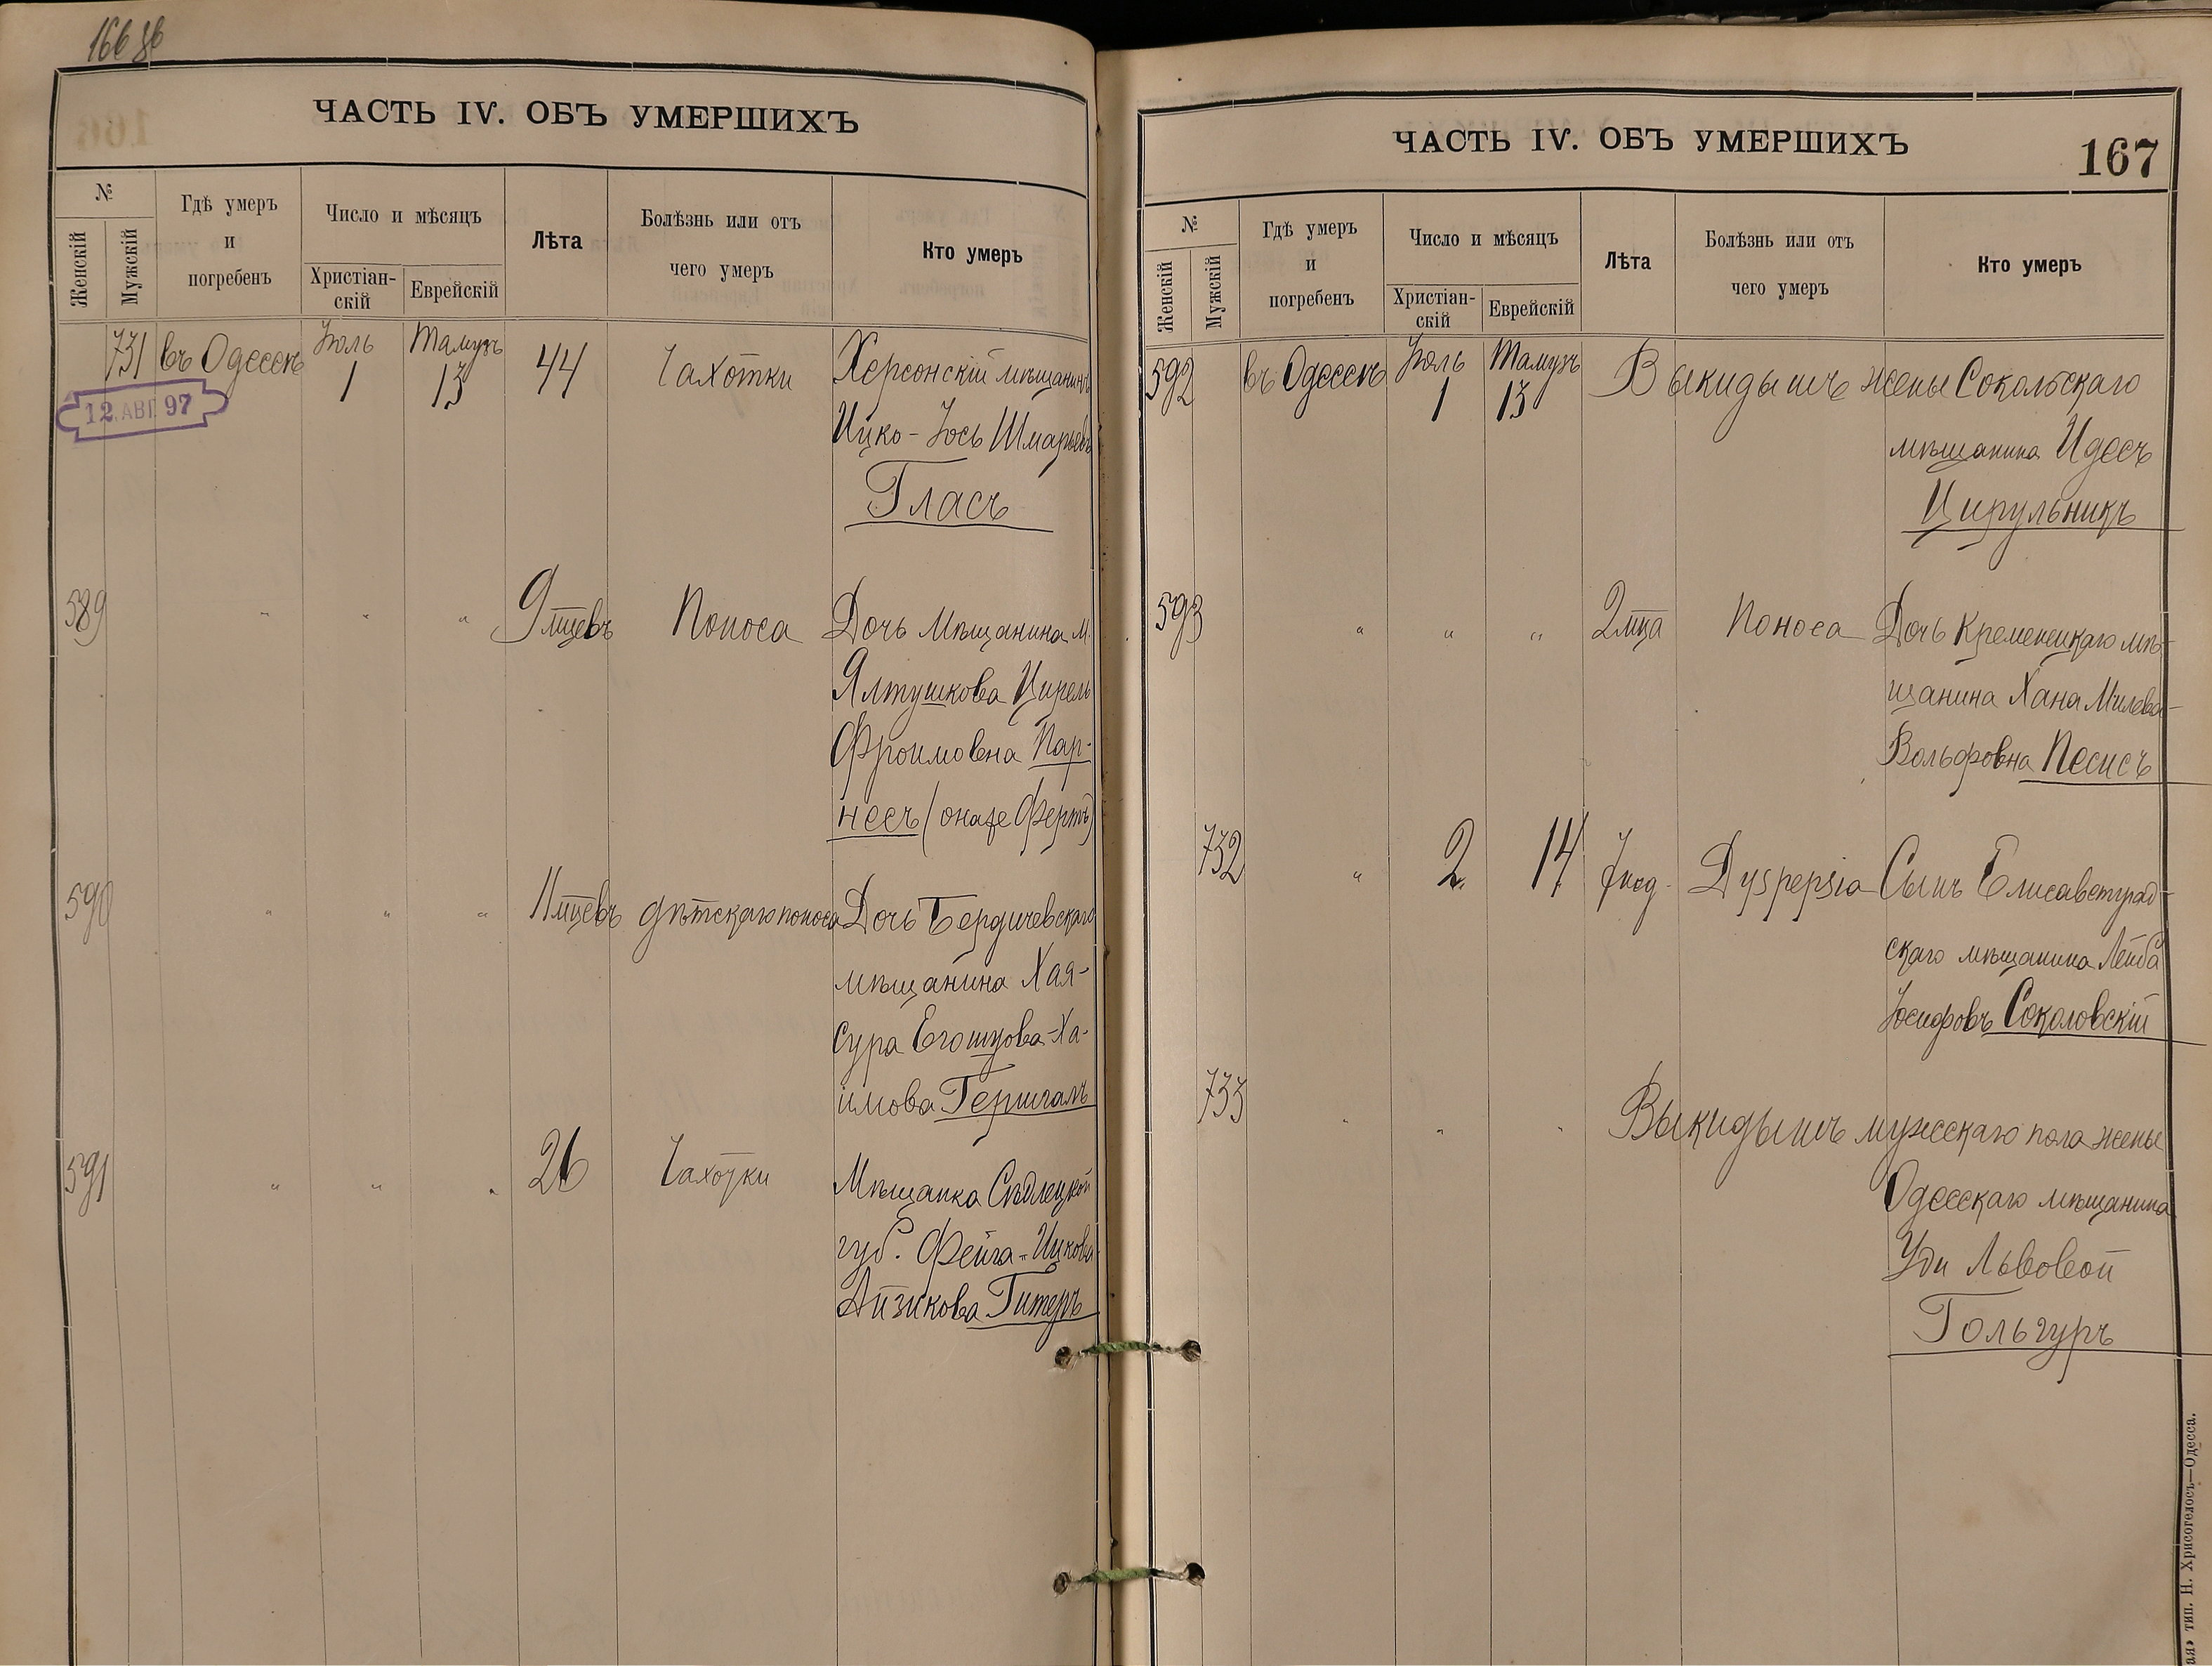 166 об
ЧАСТЬ IV. ОБЪ УМЕРШИХЪ
№
Женскій
Мужскій
Гдѣ умеръ
и
погребенъ
Число и мѣсяцъ
Христіан-
скій
Еврейскій
Лѣта
Болѣзнь или отъ
чего умеръ
Кто умеръ
731 въ Одессѣ Іюль 1 Тамузъ 13 44 Чахотки Херсонскій мѣщанинъ
12. АВГ. 97
Ицко-Іось Шмарьевъ
Гласъ
589 " " " 9 мцевъ Поноса Дочь Мѣщанина м.
Ялтушкова Цирель
Фроимовна Пар-
несъ (она же Фертъ)
590 " " " 11 мцевъ дѣтскаго поноса Дочь Бердичевскаго
мѣщанина Хая-
Сура Егошуова-Ха-
имова Гершгалъ
591 " " " 26 Чахотки Мѣщанка Сѣдлецкой
губ. Фейга-Ицкова
Айзикова Гитеръ
ЧАСТЬ IV. ОБЪ УМЕРШИХЪ
167
№
Женскій
Мужскій
Гдѣ умеръ
и
погребенъ
Число и мѣсяцъ
Христіан-
скій
Еврейскій
Лѣта
Болѣзнь или отъ
чего умеръ
Кто умеръ
592 въ Одессѣ Іюль 1 Тамузъ 13 Выкидышъ жены Сокольскаго
мѣщанина Идесъ
Цирульникъ
593 " " " 2 мца Поноса Дочь Кременецкаго мѣ-
щанина Хана Милева-
Вольфовна Песисъ
732 " 2 14 Dyspepsia Сынъ Елисаветград-
скаго мѣщанина Лейба
Іосифовъ Соколовскій
733 " " " Выкидышъ мужескаго пола жены
Одесскаго мѣщанина
Уди Львовой
Гольгуръ
ая» тип. Н. Хрисогелосъ—Одесса.